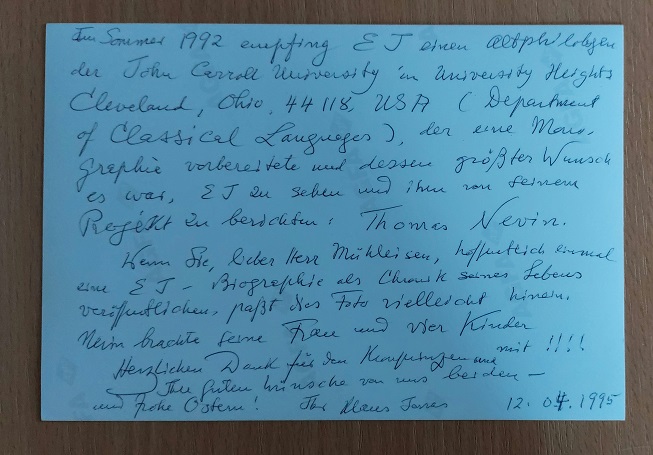 Im Sommer 1992 empfing EJ einen Altphilologen
der John Carroll University in University Heights
Cleveland, Ohio, 44118, USA (Department
of Classical Languages), der eine Mono-
graphie vorbereitete und dessen größter Wunsch
es war, EJ zu sehen und ihm von seinem
Projekt zu berichten: Thomas Nevin.
Wenn Sie, lieber Herr Mühleisen, hoffentlich einmal
eine EJ-Biographie als Chronik seines Lebens
veröffentlichen, paßt dies Foto vielleicht hinein.
Nevin brachte seine Frau und vier Kinder
mit !!!!
Herzlichen Dank für den und
Ihre guten Wünsche von uns beiden –
und frohe Ostern! Ihr Klaus 12.04.1995